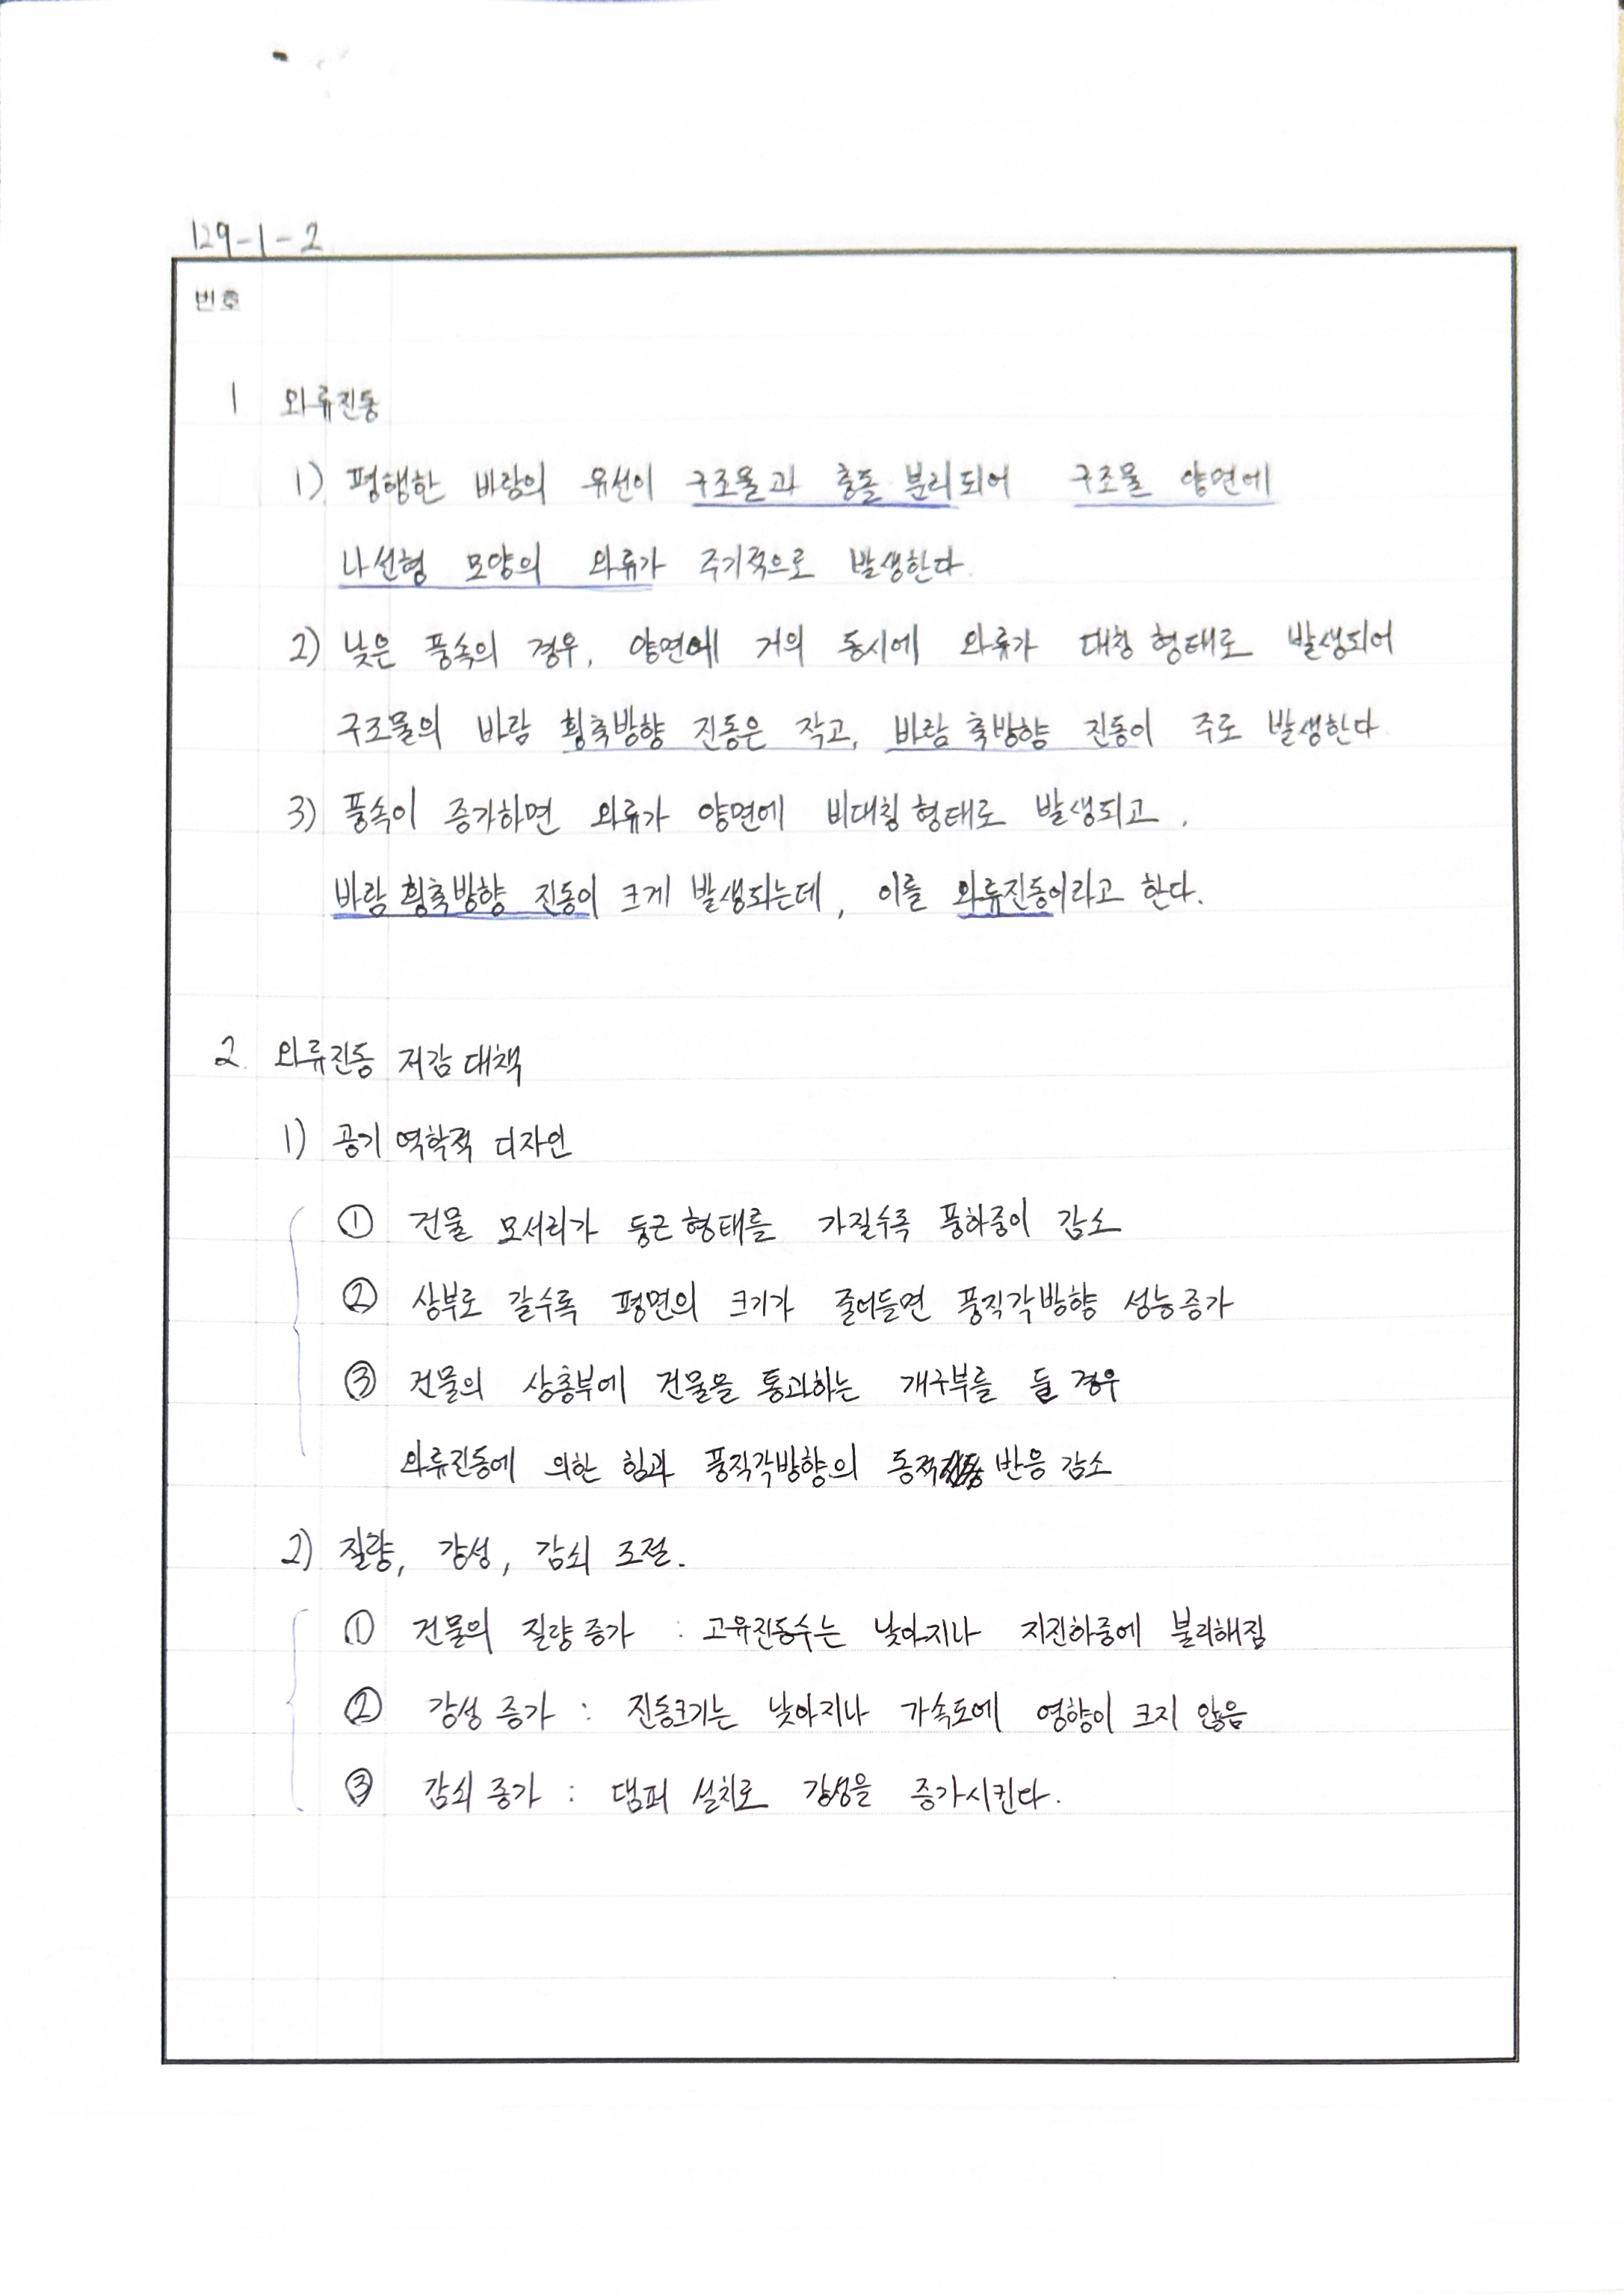 129-1-2
번호
1 와류진동
1) 평행한 바람의 유선이 구조물과 충돌 분리되어 구조물 양면에
나선형 모양의 와류가 주기적으로 발생한다.
2) 낮은 풍속의 경우, 양면에 거의 동시에 와류가 대칭 형태로 발생되어
구조물의 바람 횡축방향 진동은 작고, 바람 축방향 진동이 주로 발생한다.
3) 풍속이 증가하면 와류가 양면에 비대칭 형태로 발생되고,
바람 횡축방향 진동이 크게 발생되는데, 이를 와류진동이라고 한다.
2. 와류진동 저감 대책
1) 공기 역학적 디자인
① 건물 모서리가 둥근 형태를 가질수록 풍하중이 감소
② 상부로 갈수록 평면의 크기가 줄어들면 풍직각방향 성능증가
③ 건물의 상층부에 건물을 통과하는 개구부를 둘 경우
와류진동에 의한 힘과 풍직각방향의 동적 반응 감소
2) 질량, 강성, 감쇠 조절.
① 건물의 질량 증가 : 고유진동수는 낮아지나 지진하중에 불리해짐
② 강성 증가 : 진동크기는 낮아지나 가속도에 영향이 크지 않음
③ 감쇠 증가 : 댐퍼 설치로 강성을 증가시킨다.